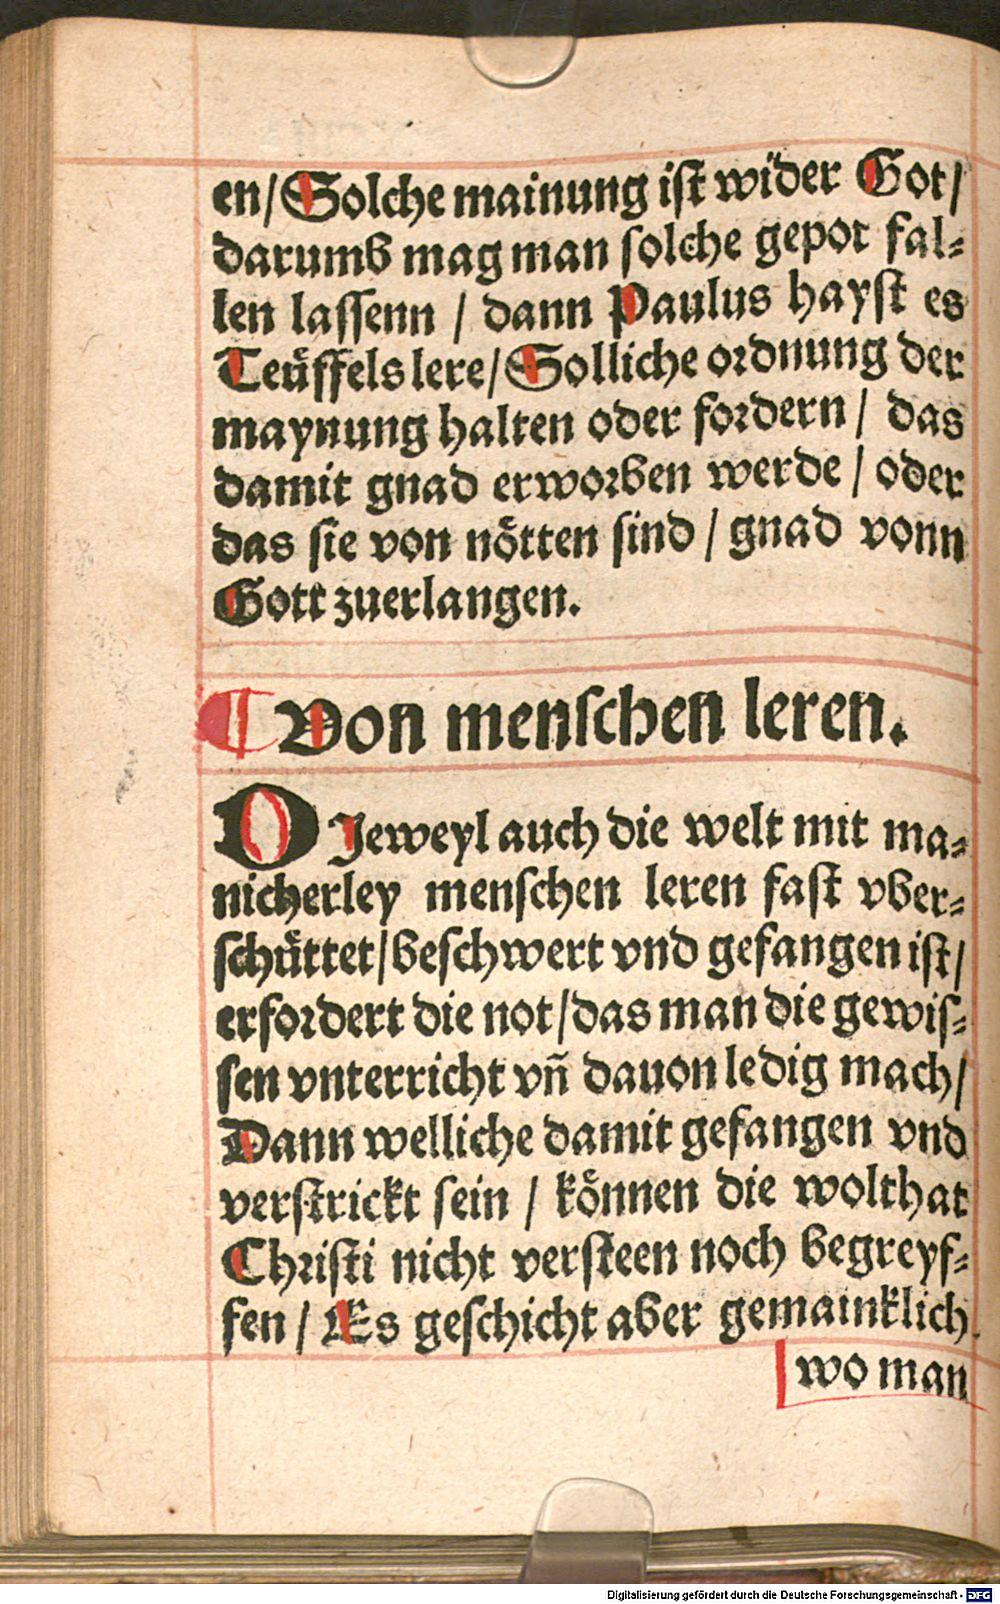 en/ Solche mainung ist wider Got/
darumb mag man solche gepot fal⸗
len lassenn / dann Paulus hayst es
Teüffels lere/ Solliche ordnung der
maynung halten oder fordern / das
damit gnad erworben werde / oder
das sie von nötten sind / gnad vonn
Gott zuerlangen.
¶ Von menschen leren.
DJeweyl auch die welt mit ma⸗
nicherley menschen leren fast vber⸗
schüttet/ beschwert vnd gefangen ist/
erfordert die not/ das man die gewis⸗
sen vnterricht vñ dauon ledig mach/
Dann welliche damit gefangen vnd
verstrickt sein / können die wolthat
Christi nicht versteen noch begreyf⸗
fen / Es geschicht aber gemainklich
wo man
Digitalisierung gefördert durch die Deutsche Forschungsgemeinschaft - DFG